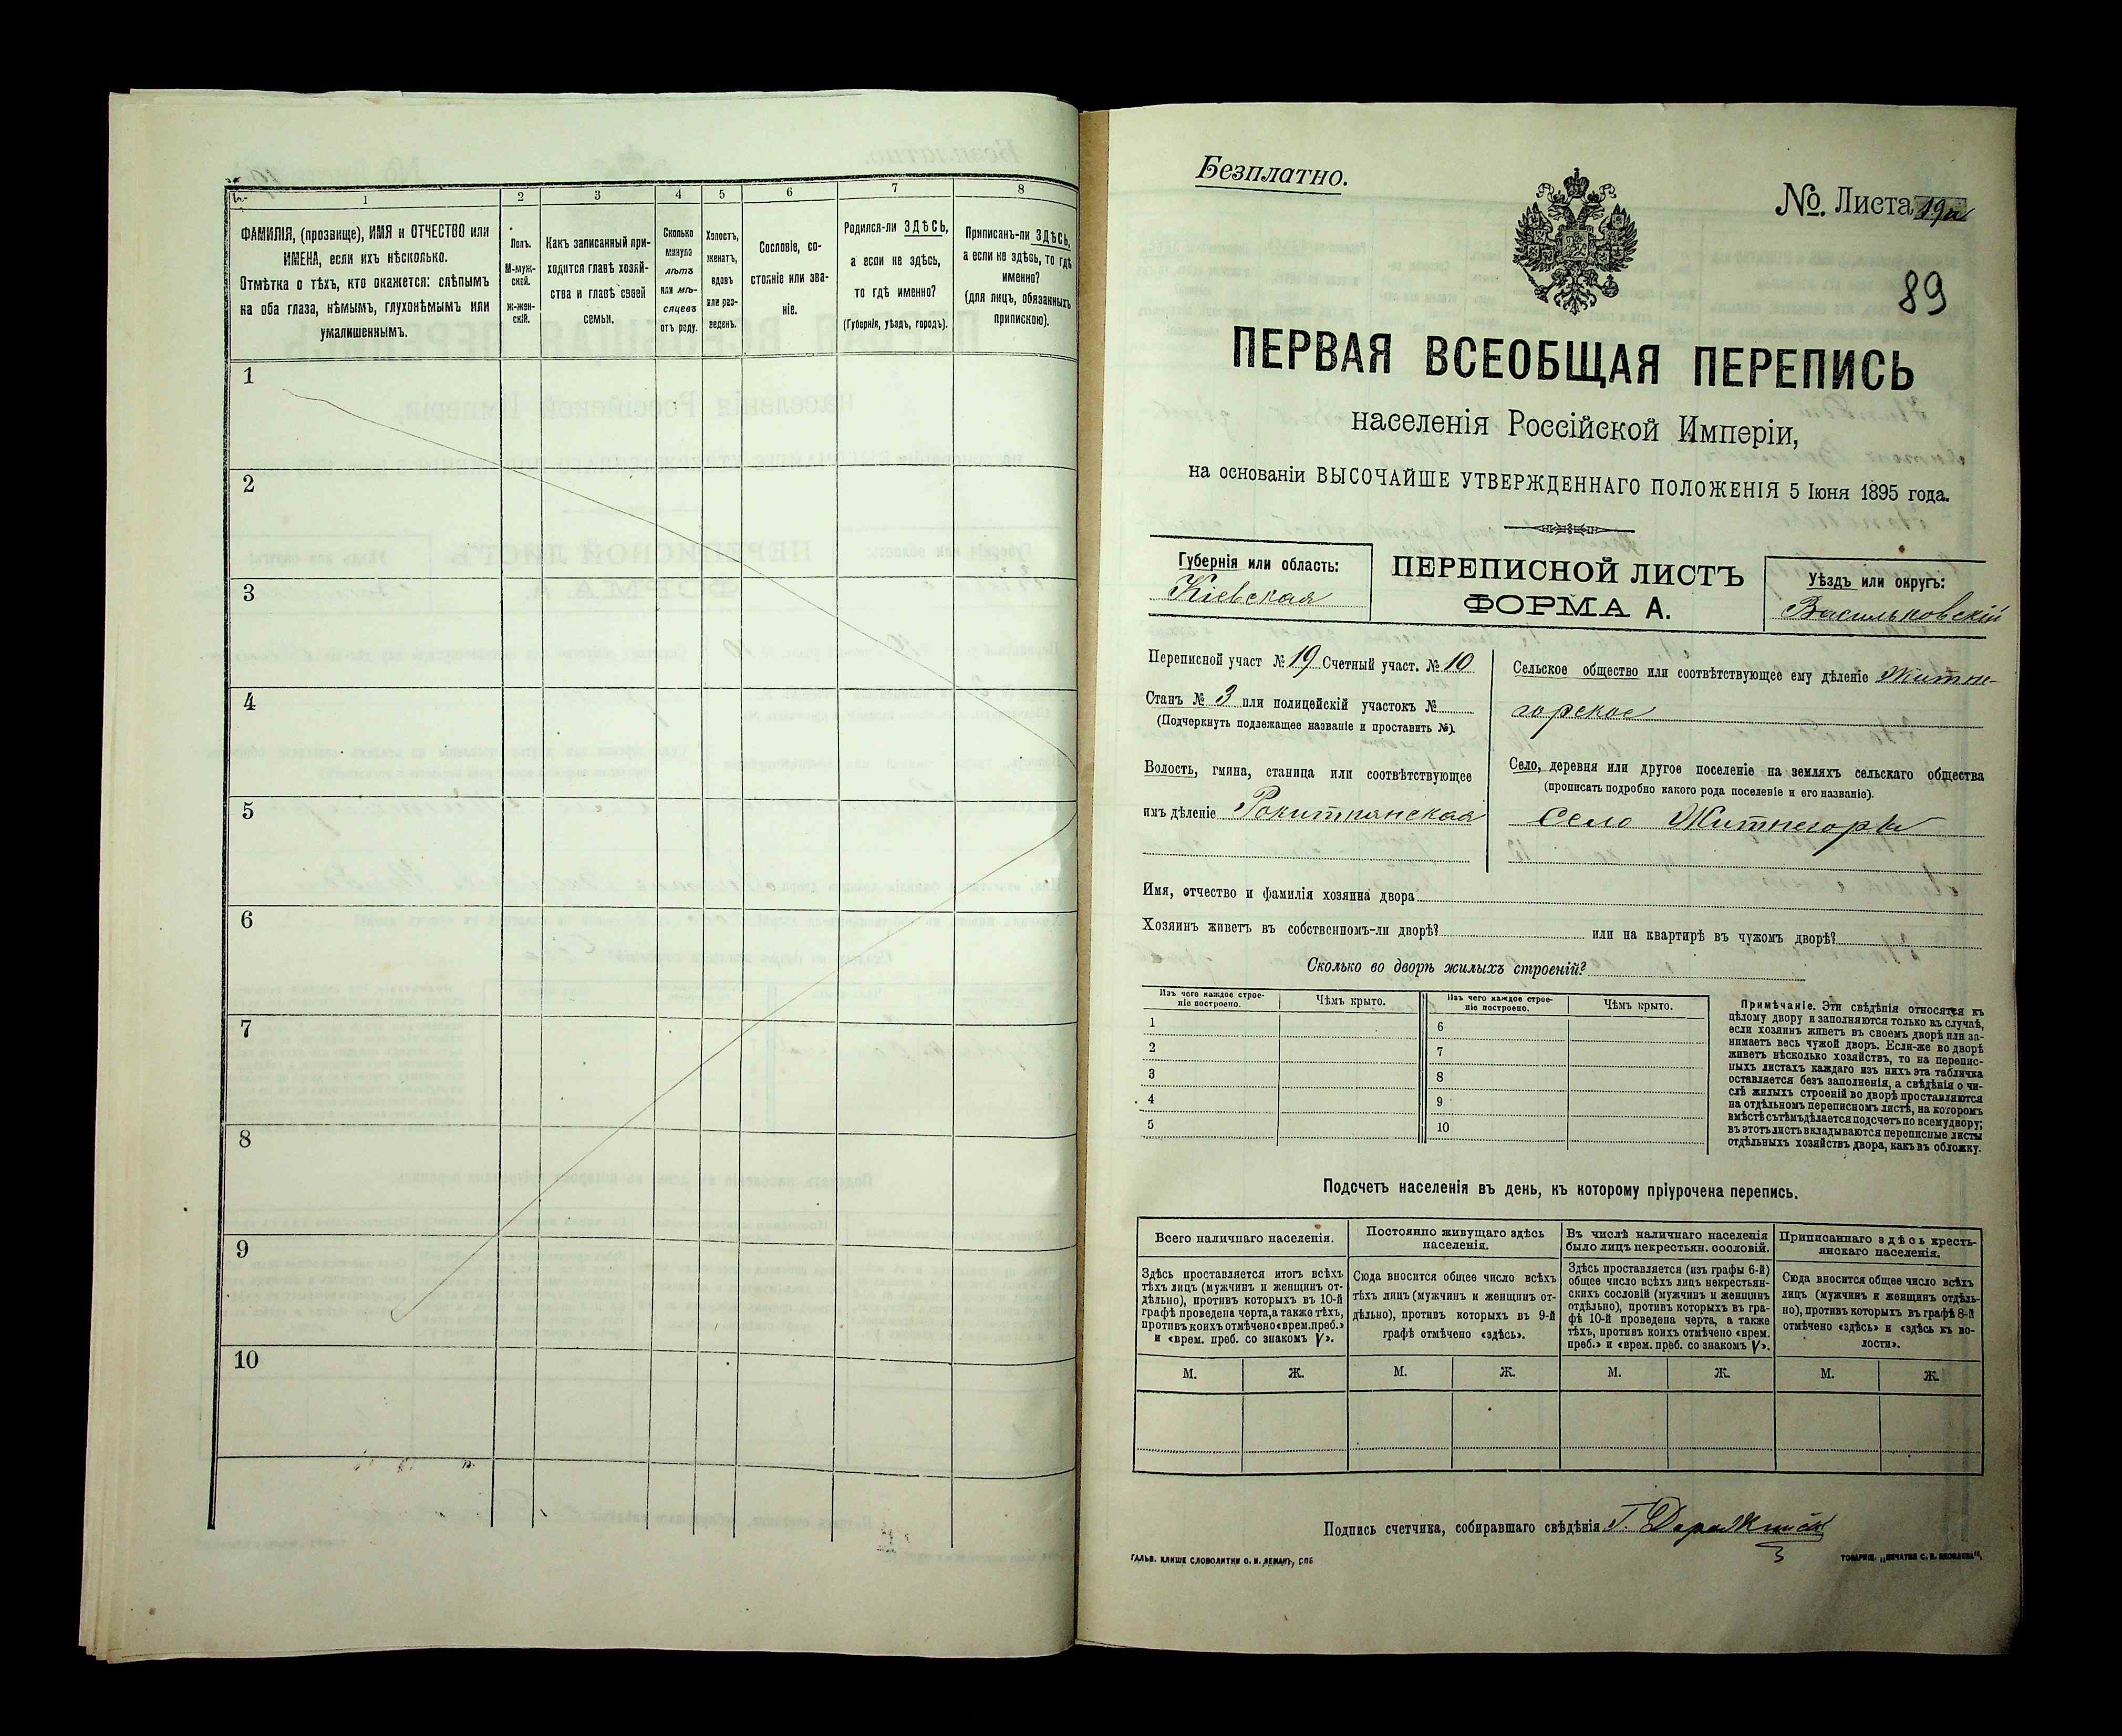 1 2 3 4 5 6 7 8
ФАМИЛІЯ, (прозвище), ИМЯ и ОТЧЕСТВО или
ИМЕНА, если ихъ нѣсколько.
Отмѣтка о тѣхъ, кто окажется: слѣпымъ
на оба глаза, нѣмымъ, глухонѣмымъ или
умалишеннымъ.
Полъ.
М-муж-
ской.
Ж-жен-
скій.
Какъ записанный при-
ходится главѣ хозяй-
ства и главѣ своей
семьи.
Сколько
минуло
лѣтъ
или мѣ-
сяцевъ
отъ роду.
Холостъ,
женатъ,
вдовъ
или раз-
веденъ.
Сословіе, со-
стояніе или зва-
ніе.
Родился-ли ЗДѢСЬ,
а если не здѣсь,
то гдѣ именно?
(Губернія, уѣздъ, городъ).
Приписанъ-ли ЗДѢСЬ,
а если не здѣсь, то гдѣ
именно?
(для лицъ, обязанныхъ
припискою).
1
2
3
4
5
6
7
8
9
10
Безплатно.
№. Листа 19а
89
ПЕРВАЯ ВСЕОБЩАЯ ПЕРЕПИСЬ
населенія Россійской Имперіи,
на основаніи ВЫСОЧАЙШЕ УТВЕРЖДЕННАГО ПОЛОЖЕНІЯ 5 Іюня 1895 года.
Губернія или область:
Кіевская
ПЕРЕПИСНОЙ ЛИСТЪ
ФОРМА А.
Уѣздъ или округъ:
Васильковскій
Переписной участ № 19 Счетный участ. № 10
Станъ № 3 или полицейскій участокъ №
(Подчеркнуть подлежащее названіе и проставить №).
Волость, гмина, станица или соотвѣтствующее
имъ дѣленіе Рокитнянская
Сельское общество или соотвѣтствующее ему дѣленіе Житне-
горское
Село, деревня или другое поселеніе на земляхъ сельскаго общества
(прописать подробно какого рода поселеніе и его названіе).
Село Житнегоры
Имя, отчество и фамилія хозяина двора
Хозяинъ живетъ въ собственномъ-ли дворѣ? или на квартирѣ въ чужомъ дворѣ?
Сколько во дворѣ жилыхъ строеній?
Изъ чего каждое строе-
ніе построено.
Чѣмъ крыто.
Изъ чего каждое строе-
ніе построено.
Чѣмъ крыто.
1 6
2 7
3 8
4 9
5 10
Примѣчаніе. Эти свѣдѣнія относятся къ
цѣлому двору и заполняются только въ случаѣ,
если хозяинъ живетъ въ своемъ дворѣ или за-
нимаетъ весь чужой дворъ. Если-же во дворѣ
живетъ нѣсколько хозяйствъ, то на перепис-
ныхъ листахъ каждаго изъ нихъ эта табличка
оставляется безъ заполненія, а свѣдѣнія о чи-
слѣ жилыхъ строеній во дворѣ проставляются
на отдѣльномъ переписномъ листѣ, на которомъ
вмѣстѣ съ тѣмъ дѣлается подсчетъ по всему двору;
въ этотъ листъ вкладываются переписные листы
отдѣльныхъ хозяйствъ двора, какъ въ обложку.
Подсчетъ населенія въ день, къ которому пріурочена перепись.
Всего наличнаго населенія.
Здѣсь проставляется итогъ всѣхъ
тѣхъ лицъ (мужчинъ и женщинъ от-
дѣльно), противъ которыхъ въ 10-й
графѣ проведена черта, а также тѣхъ,
противъ коихъ отмѣчено «врем. преб.»
и «врем. преб. со знакомъ V».
Постоянно живущаго здѣсь
населенія.
Сюда вносится общее число всѣхъ
тѣхъ лицъ (мужчинъ и женщинъ от-
дѣльно), противъ которыхъ въ 9-й
графѣ отмѣчено «здѣсь».
Въ числѣ наличнаго населенія
было лицъ некрестьян. сословій.
Здѣсь проставляется (изъ графы 6-й)
общее число всѣхъ лицъ некрестьян-
скихъ сословій (мужчинъ и женщинъ
отдѣльно), противъ которыхъ въ гра-
фѣ 10-й проведена черта, а также
тѣхъ, противъ коихъ отмѣчено «врем.
преб.» и «врем. преб. со знакомъ V».
Приписаннаго здѣсь кресть-
янскаго населенія.
Сюда вносится общее число всѣхъ
лицъ (мужчинъ и женщинъ отдѣль-
но), противъ которыхъ въ графѣ 8-й
отмѣчено «здѣсь» и «здѣсь къ во-
лости».
М. Ж. М. Ж. М. Ж. М. Ж.
Подпись счетчика, собиравшаго свѣдѣнія Г.
ГАЛЬВ. КЛИШЕ СЛОВОЛИТНИ О. И. ЛЕМАНЪ, СПБ
ТОВАРИЩ. „ПЕЧАТНИ С. П. ЯКОВЛЕВА“.